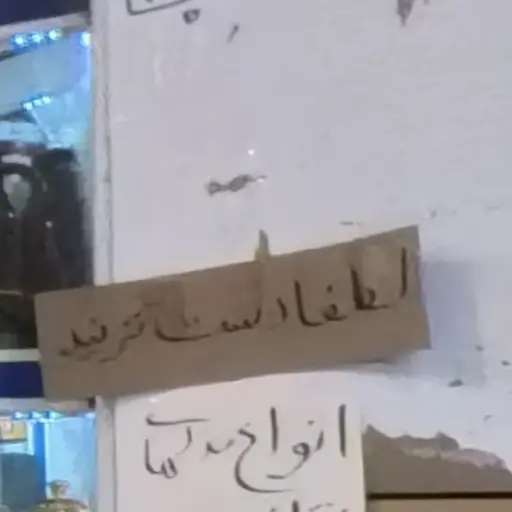 لطفا دست نزنید
انواع مدلها